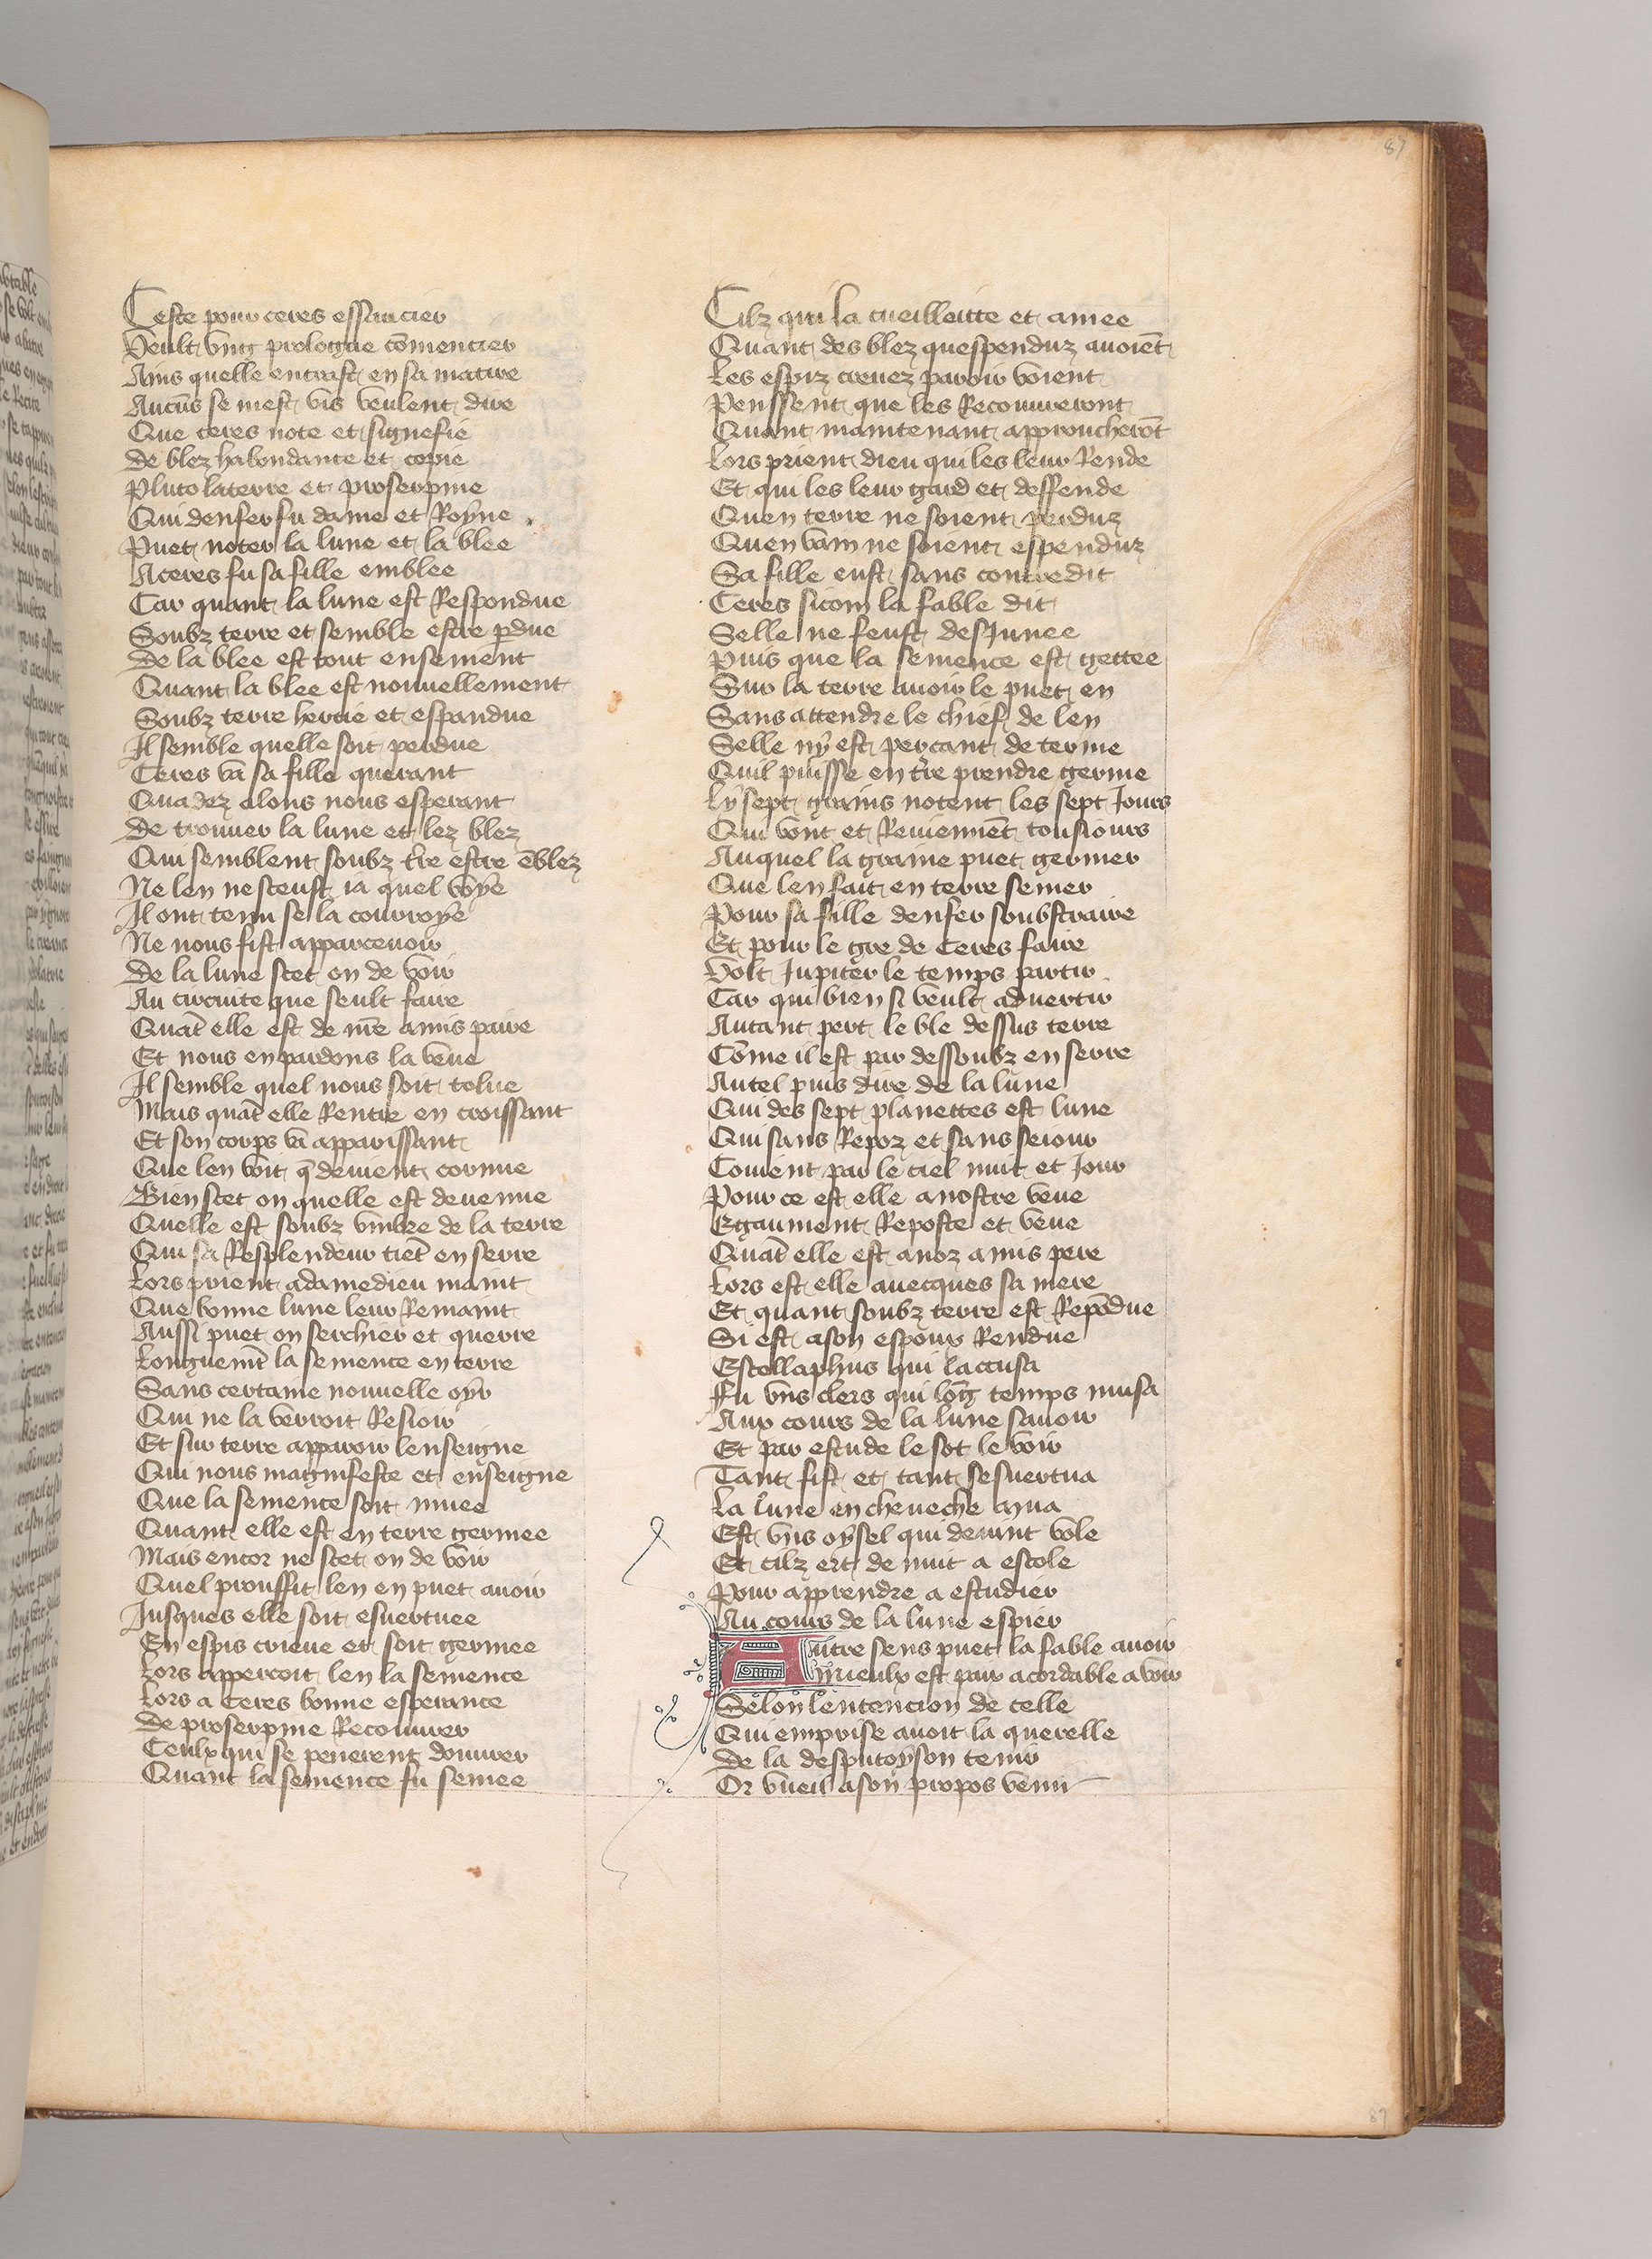 87
Ceste pour ceres essaucier
Veult vng prologue cōmencier
Ains quelle entrast en sa matire
Aucūs se mest vis veulent dire
Que ceres note et signefie
de blez habondance et copie
Pluto laterre et proserpine
Qui denfer fu dame et Royne
Puet noter la lune et la blee
A ceres fu sa fille emblee
Car quant la lune est Respondue
Soubz terre et semble estre pdue
De la blee est tout ensement
Quant la blee est nouuellement
Soubz terre hercie et espandue
Il semble quelle soit perdue
Ceres va sa fille querant
Qua dez alons nous esperant
De trouuer la lune et lez blez
Qui semblent soubz tre estre ēblez
Ne len ne sceust ia quel voye
Il ont tenu se la courroye
Ne nous fist apparcenoir
De la lune scet on de voir
Au circuite que seult faire
Quāt elle est de mre a mis paire
Et nous en pardons la veue
Il semble quel nous soit tolue
Mais quāt elle Rentre en croissant
Et son corps va apparissant
Que len voit q̄ deuient cornue
Bien scet on quelle est deuenue
Quelle est soubz vmbre de la terre
Qui sa Resplendeur tiēt en serre
Lors prient adamedieu maint
Que bonne lune leur Remaint
Aussi puet on serchier et querre
Longuemt la semence en terre
Sans certaine nouuelle oyr
Qui ne la verroit Resioir
Et sur terre apparoir lenseigne
Qui nous magnifeste et enseigne
Que la semence soit muee
Quant elle est en terre germee
Mais encor ne scet on de voir
Quel prouffit len en puet auoir
Jusques elle soit esuertuee
En espis crieue et soit germee
Lors appercoit len la semence
Lors a Ceres bonne esperance
de proserpine Recouurer
Ceulx qui se penerent douurer
Quant la semence fu semee
Cilz qui la cueilleitte et amee
Quant des blez quespenduz auoiēt
Les espiz creuez paroir voient
Penssent que les Recouureront
Quant maintenant approucherōt
Lors prient dieu qui les leur Rende
Et qui les leur gard et deffende
Quen terre ne soient perduz
Quen vain ne soient espenduz
Sa fille eust sans contredit
Ceres sicom la fable dit
Selle ne feust desJunee
Puis que la semence est gettee
Sur la terre auoir le puet en
Sans attendre le chief de len
Selle ny est percant de terme
Quil puisse en tre prendre germe
Ly sept grains notent les sept Jours
Qui vont et Reuiennēt tousiours
Auquel la graine puet germer
Que len fait en terre semer
Pour sa fille denfer soubstraire
Et pour le gre de Ceres faire
Volt Jupiter le temps partir
Car qui bien si veult aduertir
Autant pert le ble dessus terre
Cōme il est par dessoubz en serre
Autel puis dire de la lune
Qui des sept planettes est lune
Qui sans Repoz et sans seiour
Couient par le ciel nuit et Jour
Pour ce est elle anostre veue
Egaument Reposte et veue
Quāt elle est anoz amis pere
Lors est elle auecques sa mere
Et quant soubz terre est Repōdue
Si est ason espous Rendue
Escollaphus qui laccusa
Fu vns clers qui lōg temps musa
Aux cours de la lune sauoir
Et par estude le sot le voir
Tant fist et tant sesuertua
La lune en cheueche mua
Est vns oysel qui de nuit vole
Et cilz ert de nuit a escole
Pour apprendre a estudier
Au cours de la lune espier
Autre sens puet la fable auoir
Qmieulx est pair acordable a voir
Selon lentencion de celle
Qui emprise auoit la querelle
De la desputoyson tenir
Or vueil ason propos venir
87